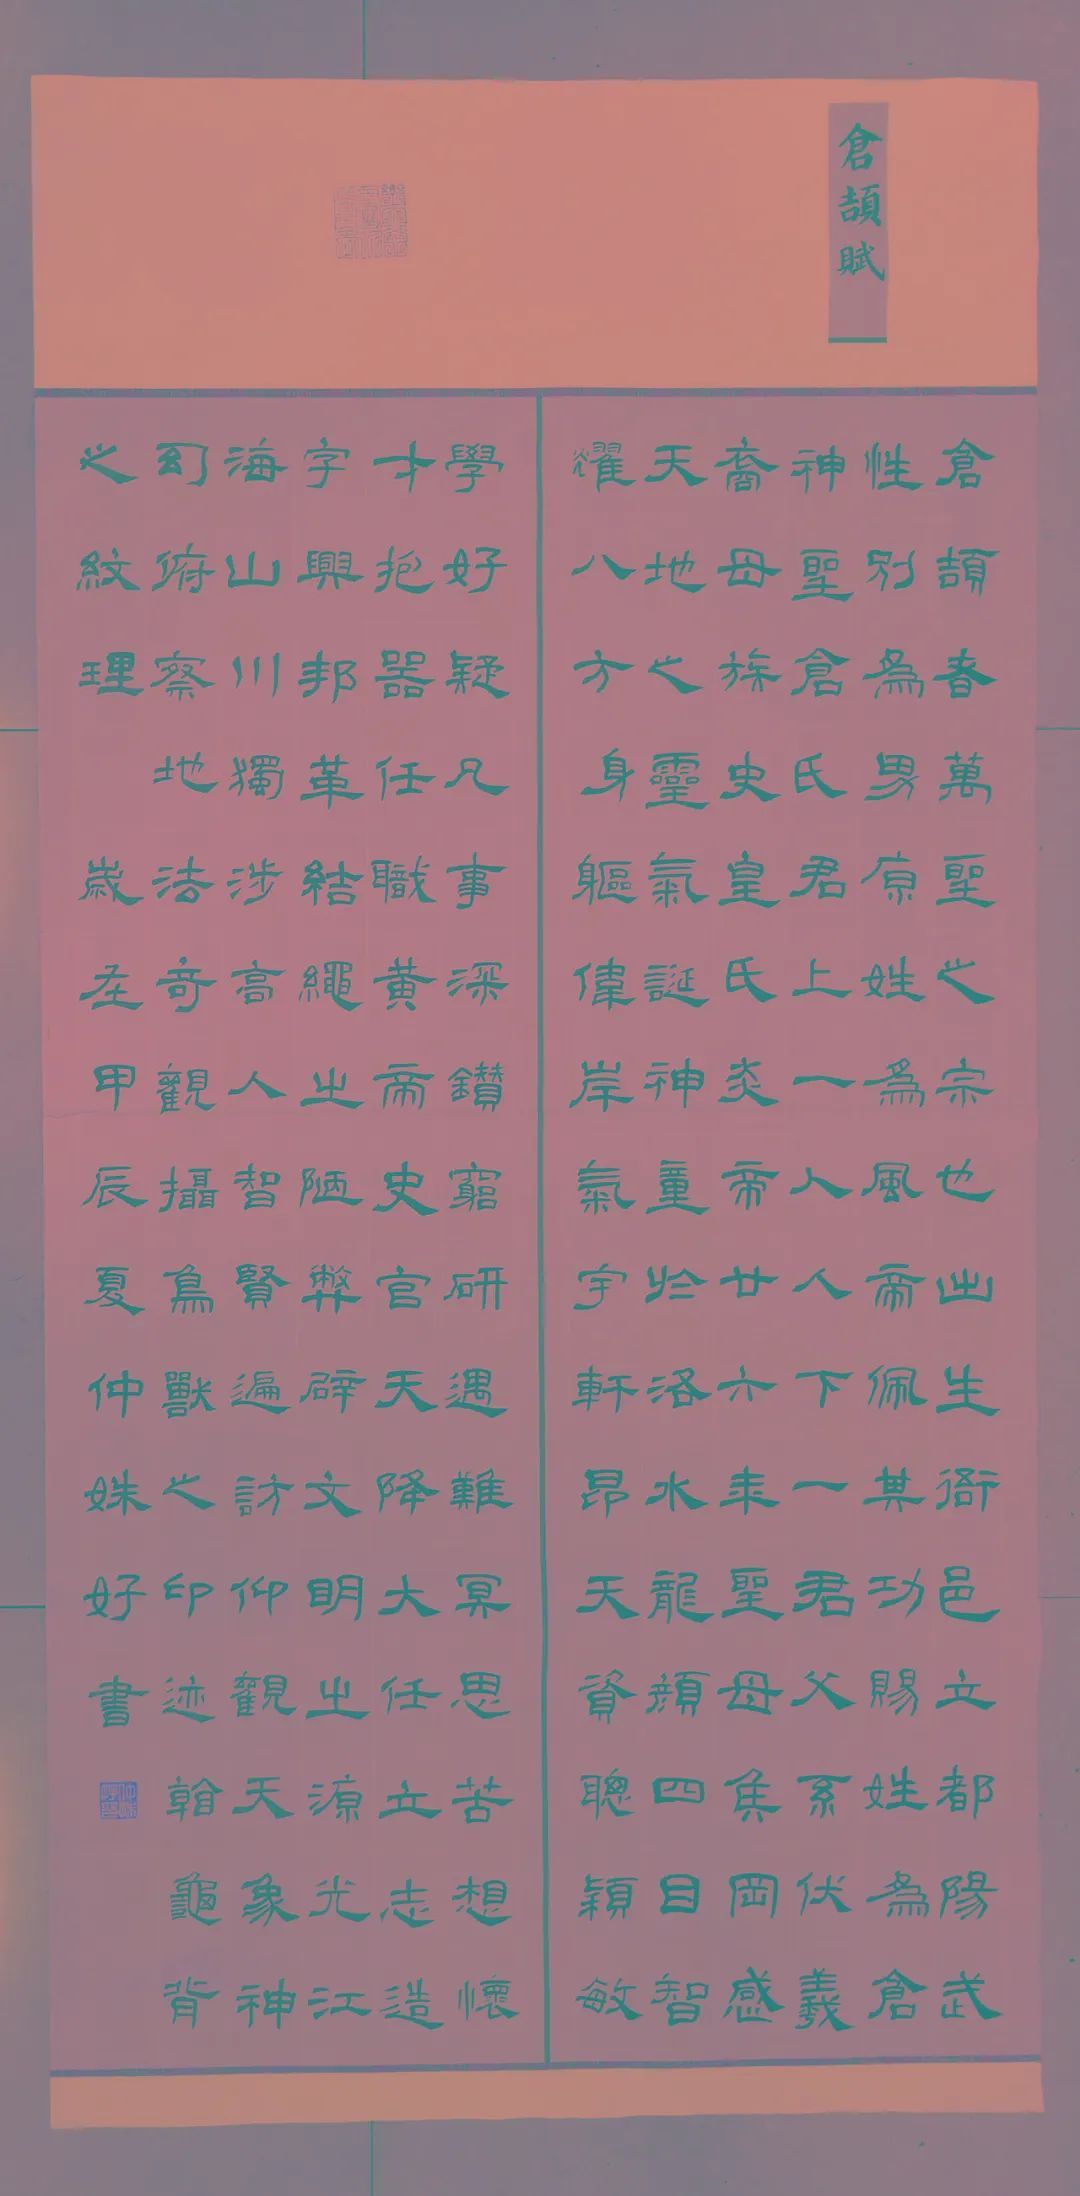 倉頡賦
倉頡者萬聖之宗也出生衙邑立都陽武
性別為男原姓為風帝佩其功賜姓為倉
神聖倉氏君上一人人下一君父系伏羲
裔母族史皇氏炎帝廿六來聖母焦岡感
天地之靈氣誕神童於洛水龍顏四目智
耀八方身軀偉岸氣宇軒昂天資聰穎敏
學好疑凡事深鑽窮研遇難冥思苦想懷
才抱器任職黃帝史官天降大任立志造
字興邦革結繩之陋弊辟文明之源光江
海山川獨涉高人智賢遍訪仰觀天象神
幻俯察地法奇觀攝鳥獸之印迹翰龜背
之紋理 歲在甲辰夏仲姝好書